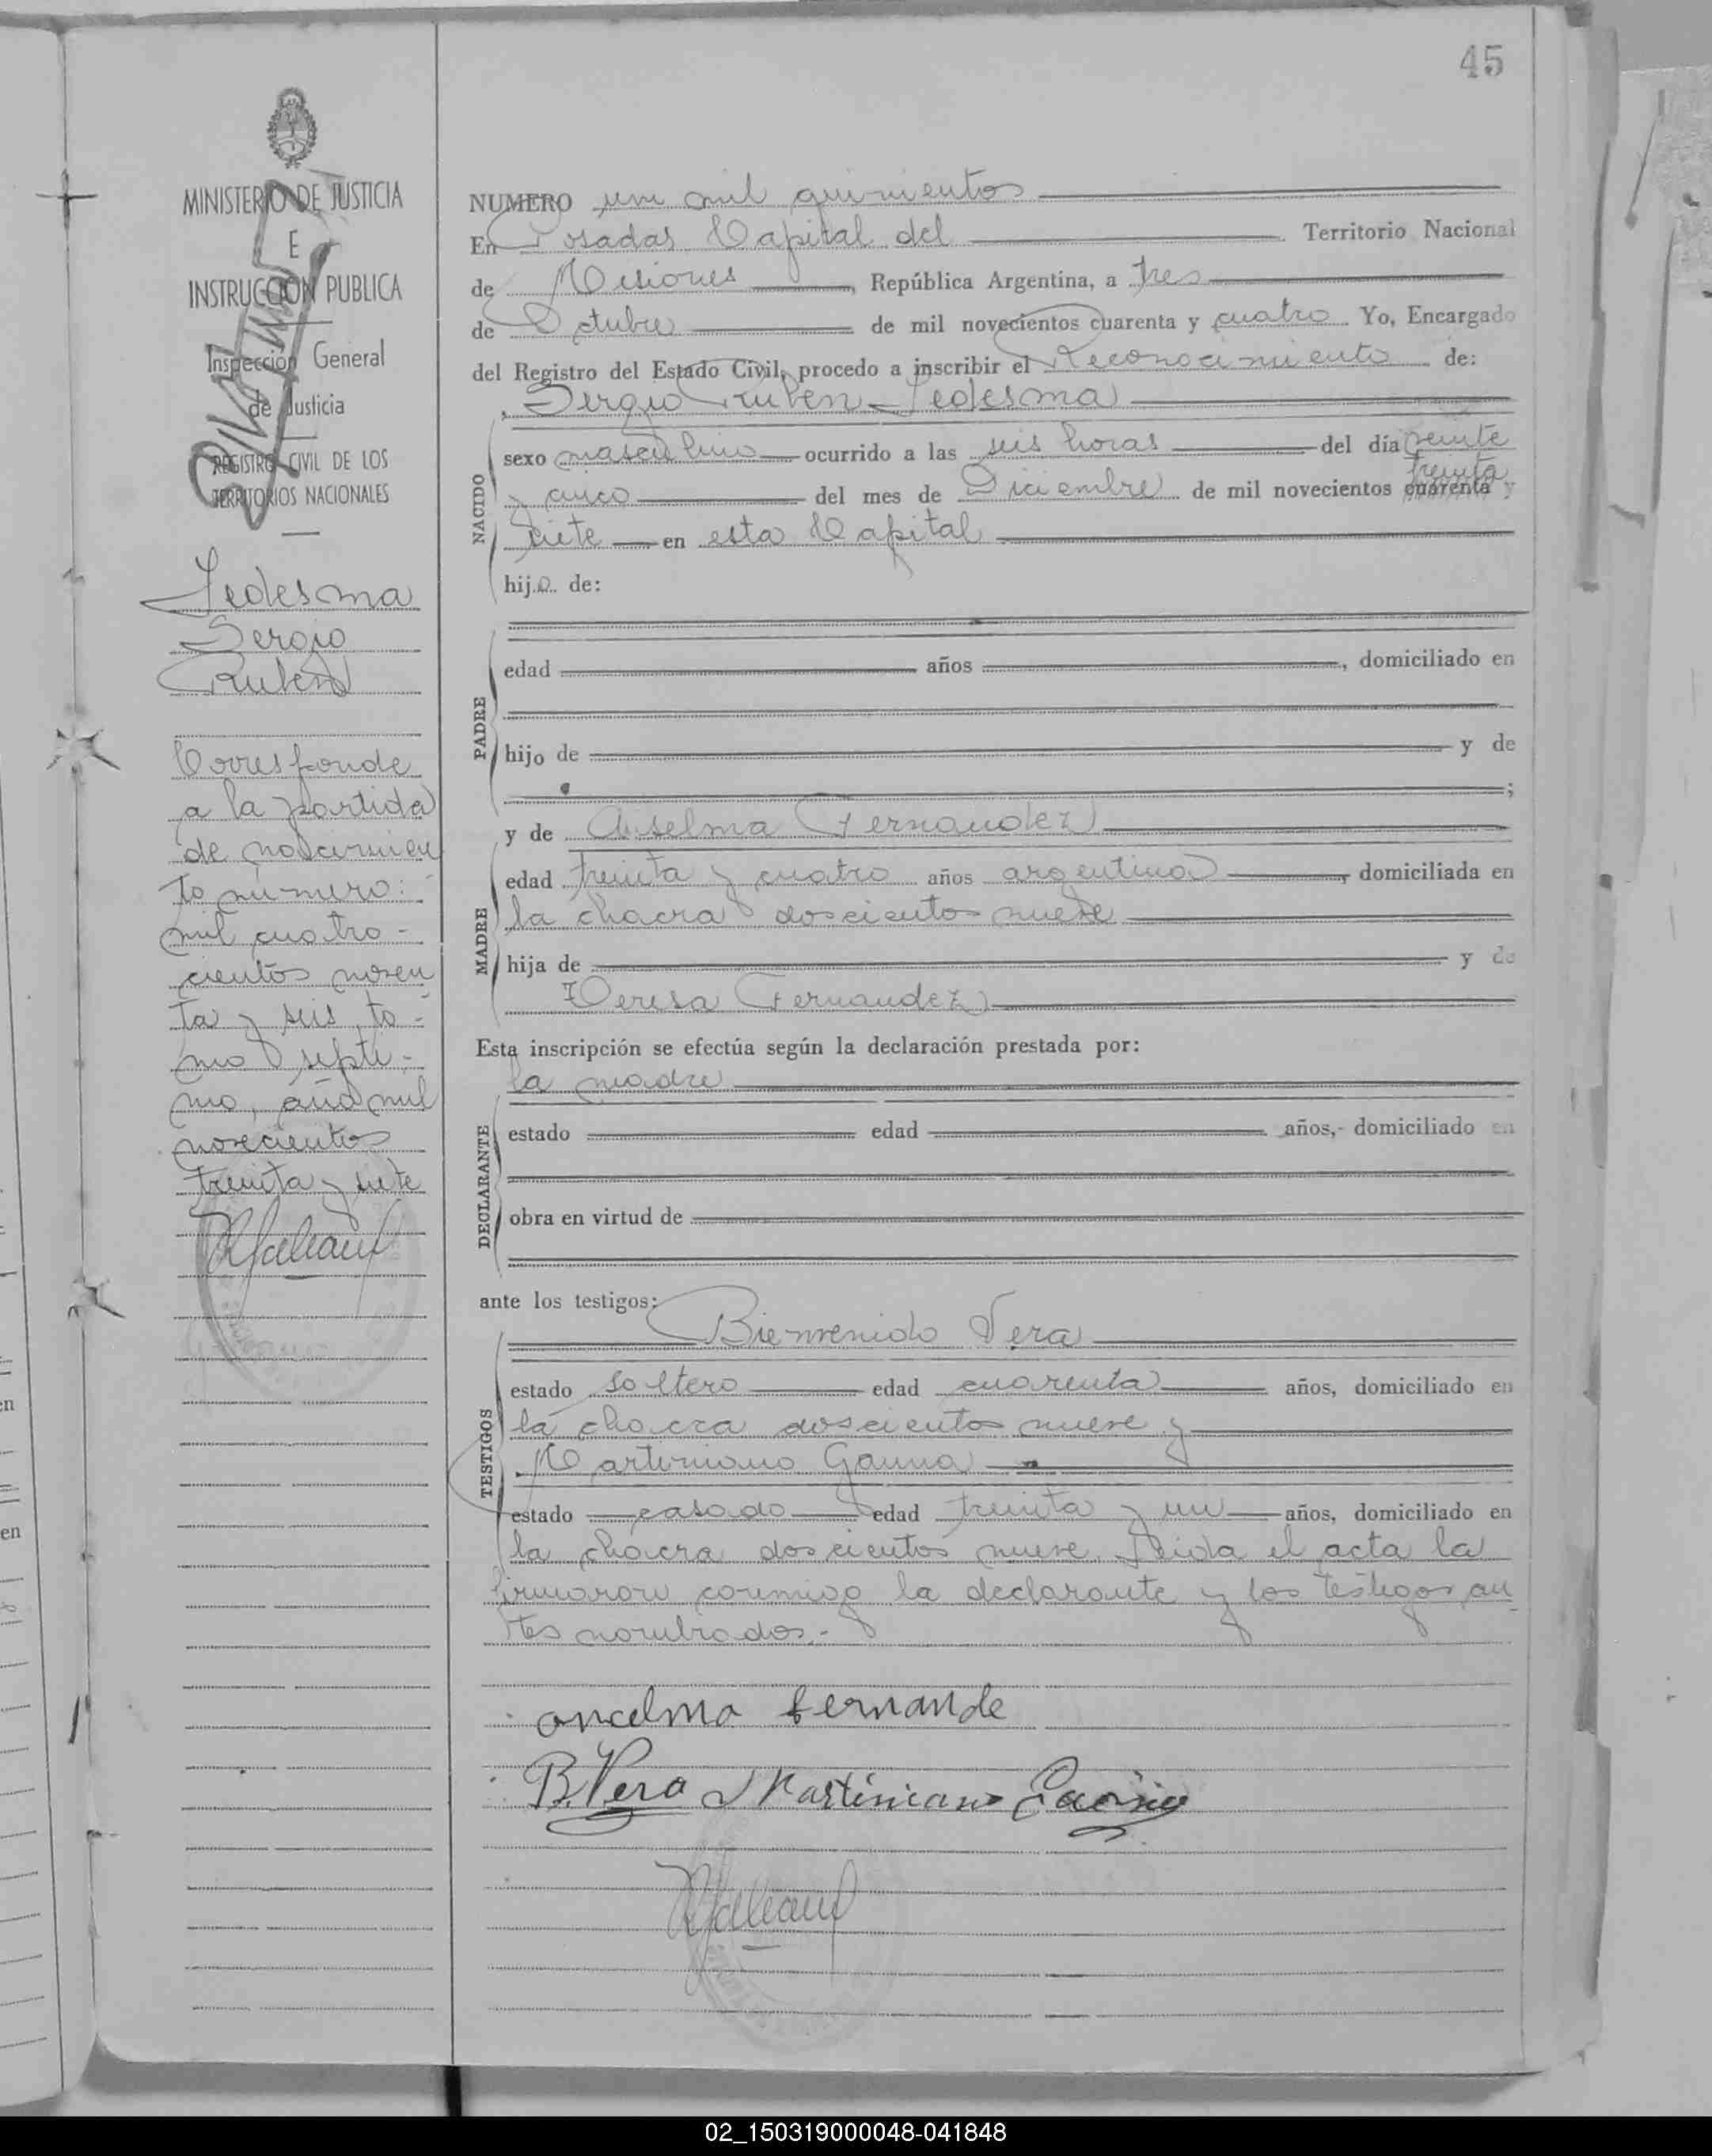 45
MINISTERIO DE JUSTICIA
E
INSTRUCCION PUBLICA
Inspección General
de Justicia
REGISTRO CIVIL DE LOS
TERRITORIOS NACIONALES
Ledesma
Sergio
Ruben
Corresponde
a la partida
de nacimien
to número:
mil cuatro-
cientos noven
ta y seis, to-
mo septi-
mo, año mil
novecientos
treinta y siete
NUMERO un mil quinientos
En Posadas Capital del Territorio Nacional
de Misiones, República Argentina, a tres
de Octubre de mil novecientos cuarenta y cuatro Yo, Encargado
del Registro del Estado Civil, procedo a inscribir el Reconocimiento de:
Sergio Ruben Ledesma
NACIDO
sexo masculino ocurrido a las seis horas del día veinte
treinta
y cinco del mes de Diciembre de mil novecientos cuarenta y
siete en esta Capital
hijo de:
PADRE
edad años , domiciliado en
hijo de y de
;
y de Anselma Fernandez
MADRE
edad treinta y cuatro años argentina, domiciliada en
la chacra doscientos nueve
hija de y de
Teresa Fernandez
Esta inscripción se efectúa según la declaración prestada por:
la madre
DECLARANTE
estado edad años, domiciliado en
obra en virtud de
ante los testigos:
Bienvenido Vera
TESTIGOS
estado soltero edad cuarenta años, domiciliado en
la chacra doscientos nueve y
Martiniano Gauna
estado casado edad treinta y un años, domiciliado en
la chacra doscientos nueve. Leida el acta la
firmaron conmigo la declarante y los testigos an
tes nombrados.-
ancelma fernande
B. Vera Martiniano Gauna
02_150319000048-041848